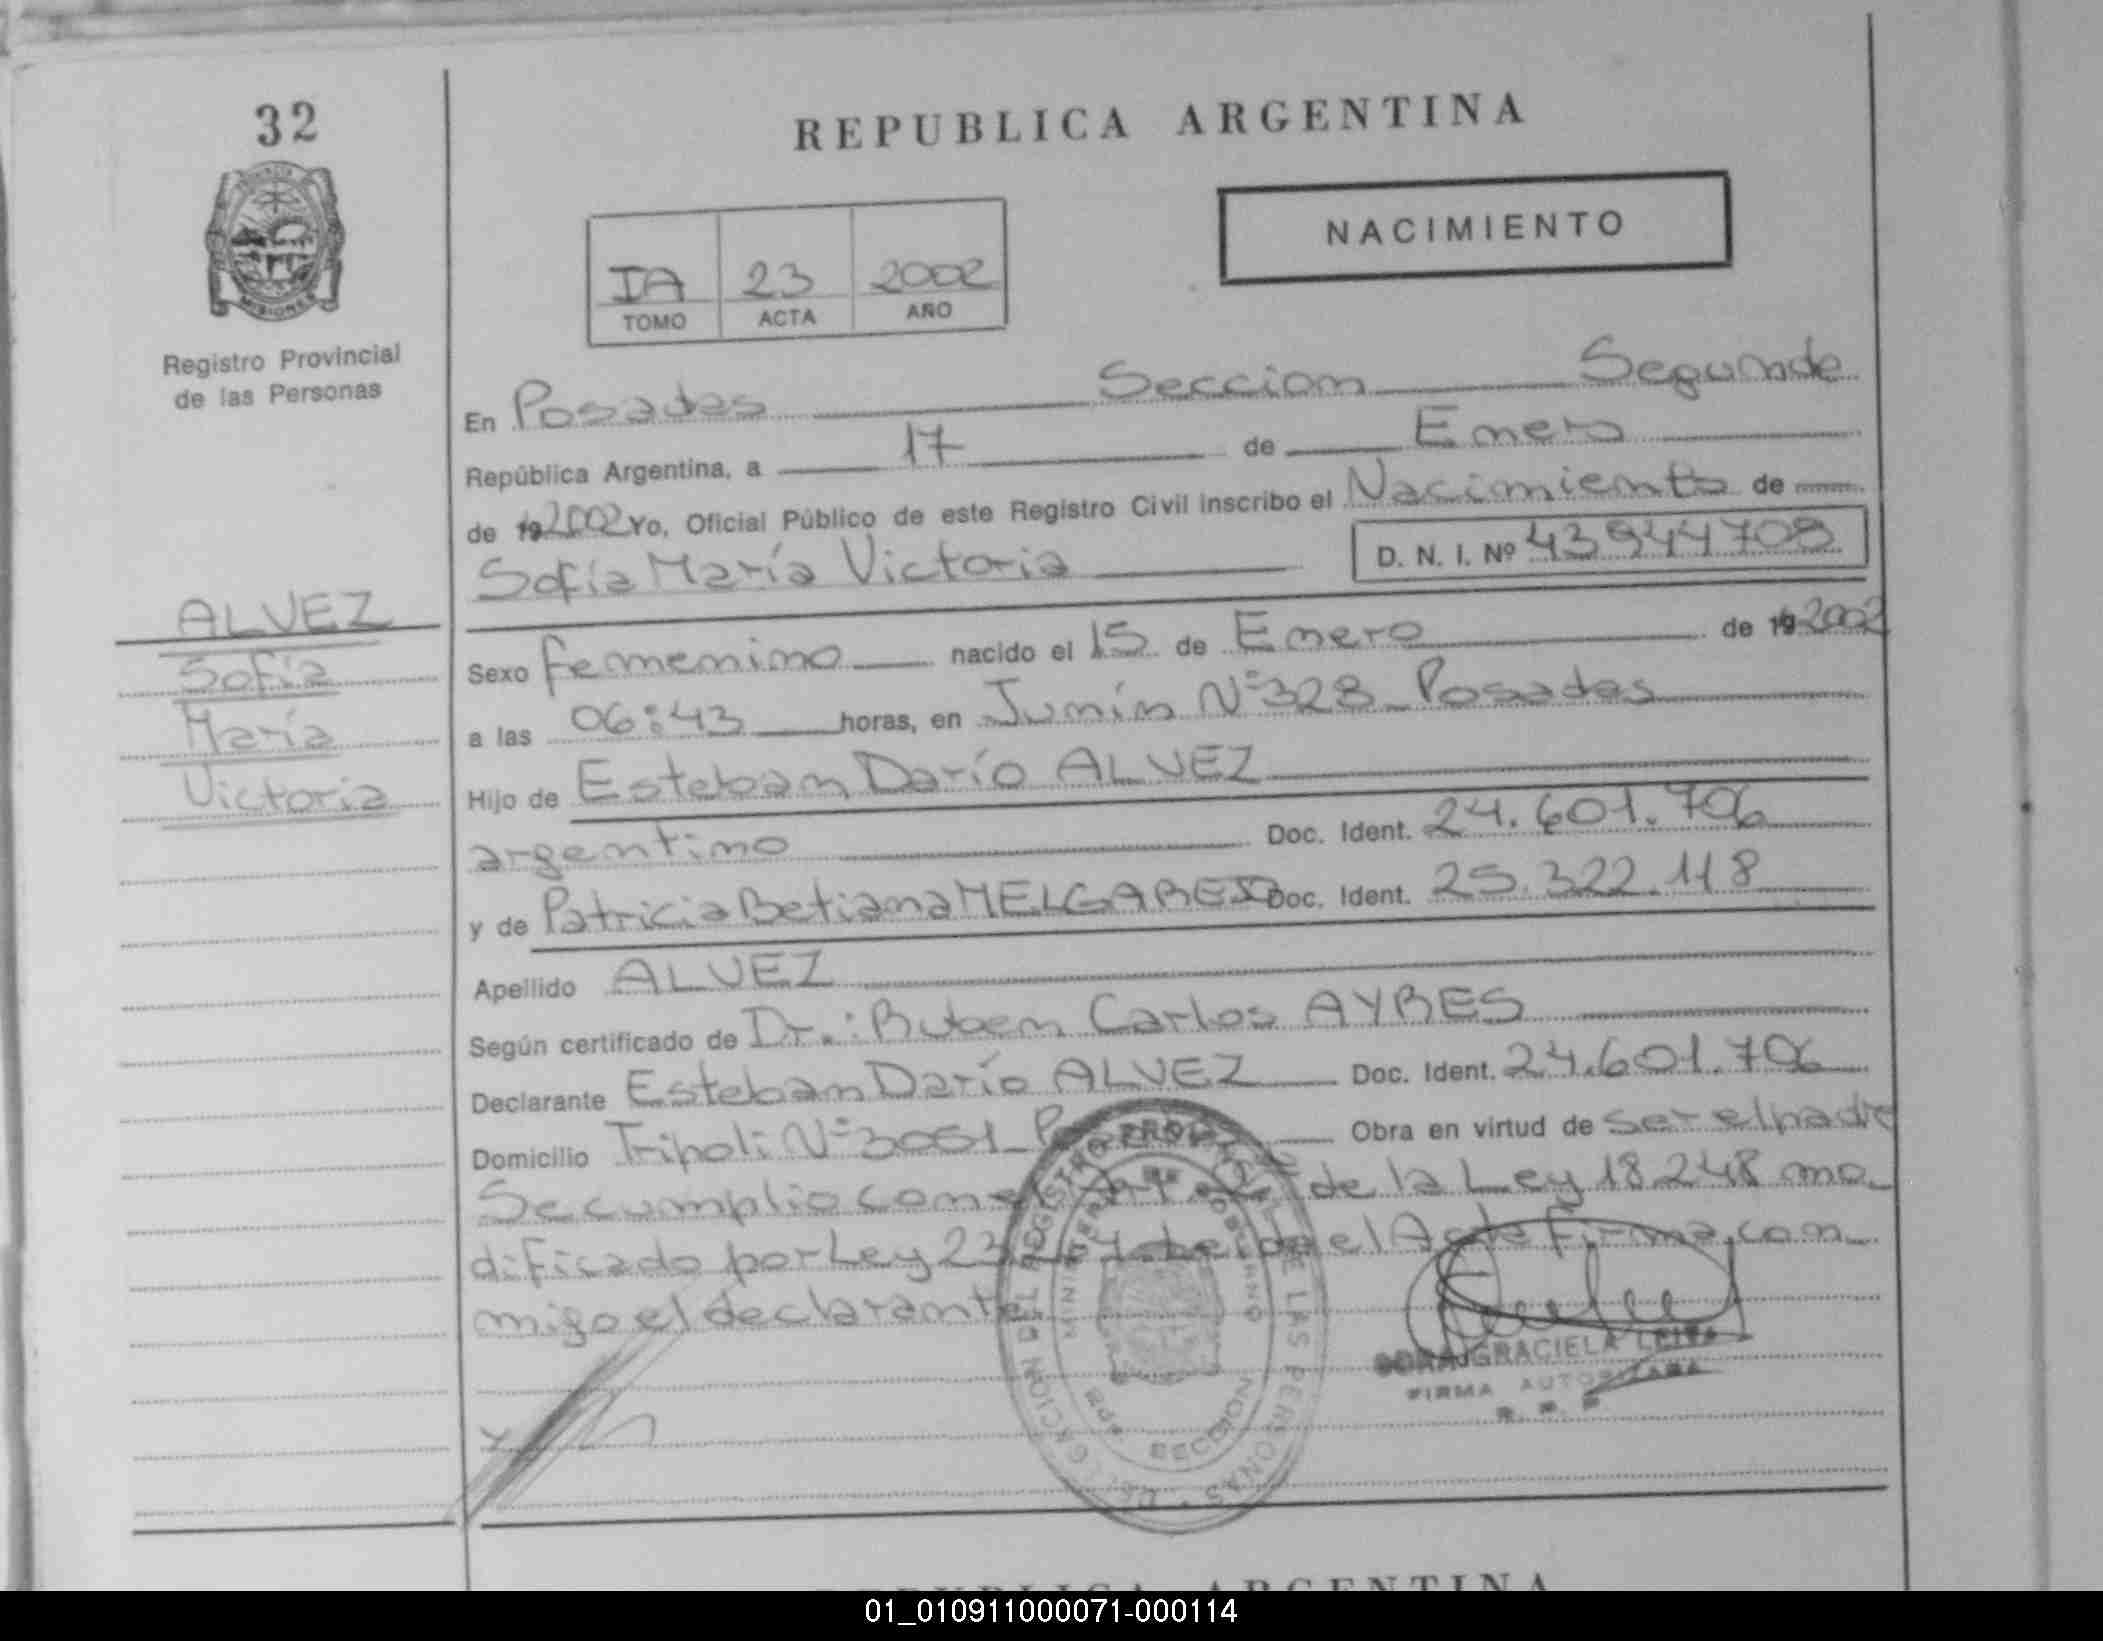 32
REPUBLICA ARGENTINA
NACIMIENTO
IA 23 2002
TOMO ACTA AÑO
MISIONES
Registro Provincial
de las Personas
En Posadas Seccion Segunda
República Argentina, a 17 de Enero
de 19 2002 Yo, Oficial Público de este Registro Civil inscribo el Nacimiento de
Sofía María Victoria D. N. I. Nº 43944709
ALVEZ
Sofía
María
Victoria
Sexo femenino nacido el 15 de Enero de 19 2002
a las 06:43 horas, en Junín Nº 328 Posadas
Hijo de Esteban Darío ALVEZ
argentino Doc. Ident. 24.601.706
y de Patricia Betiana MELGAREJO Doc. Ident. 25.322.118
Apellido ALVEZ
Según certificado de Dr.: Ruben Carlos AYRES
Declarante Esteban Darío ALVEZ Doc. Ident. 24.601.706
Domicilio Tripoli Nº 3051 Obra en virtud de ser el padre
Se cumplio con el de la Ley 18.248 mo_
dificado por Ley el Acta firma con_
migo el declarante
GRACIELA LEIVA
FIRMA AUTORIZADA
R. P. P.
REPUBLICA ARGENTINA
01_010911000071-000114